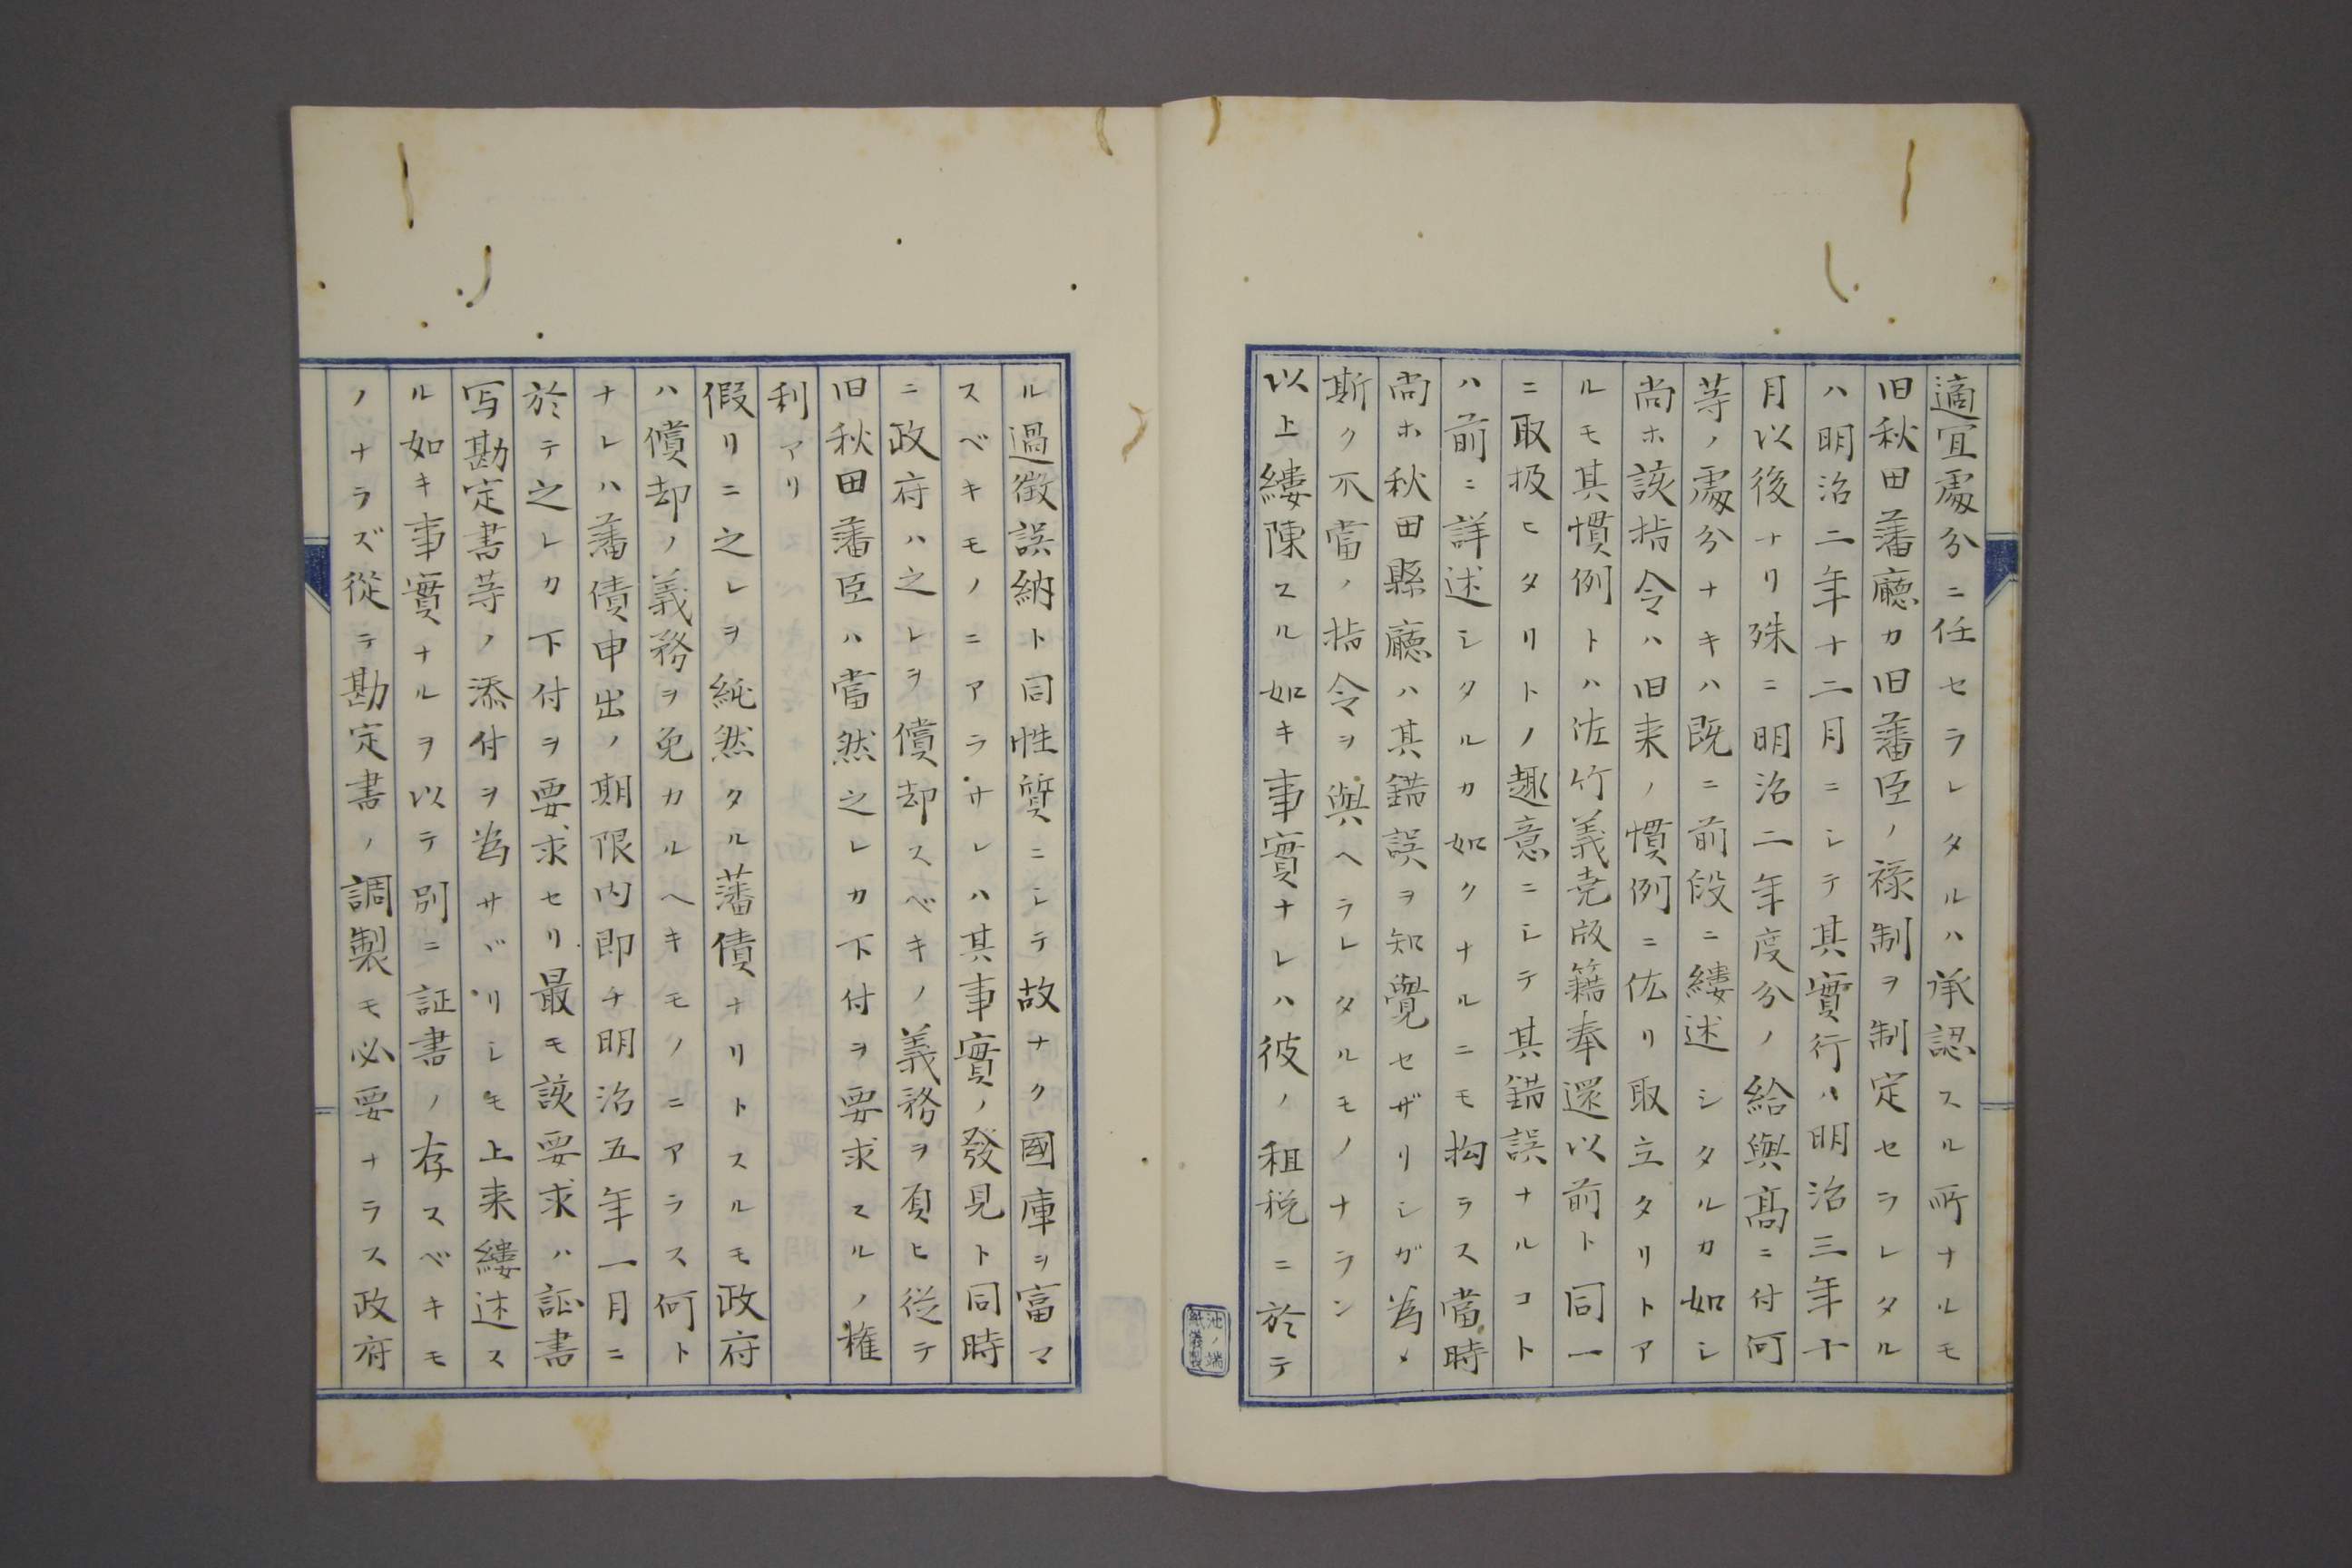 適宜處分ニ任セラレタルハ承認スル所ナルモ
旧秋田藩廳カ旧藩臣ノ禄制ヲ制定セラレタル
ハ明治二年十二月ニシテ其實行ハ明治三年十
月以後ナリ殊ニ明治二年度分ノ給與髙ニ付何
等ノ處分ナキハ既ニ前段ニ縷述シタルカ如シ
尚ホ該指令ハ旧来ノ慣例ニ仏リ取立タリトア
ルモ其慣例トハ佐竹義尭版籍奉還以前ト同一
ニ取扱ヒタリトノ趣意ニシテ其錯誤ナルコト
ハ前ニ詳述シタルカ如クナルニモ拘ラス當時
尚ホ秋田縣廳ハ其錯誤ヲ知覺セザリシガ為メ
斯ク不當ノ指令ヲ與ヘラレタルモノナラン
以上縷陳スル如キ事實ナレハ彼ノ租税ニ於テ
ル過徴誤納ト同性質ニシテ故ナク國庫ヲ富マ
スベキモノニアラサレハ其事實ノ發見ト同時
ニ政府ハ之レヲ償却スベキノ義務ヲ負ヒ従テ
旧秋田藩臣ハ當然之レカ下付ヲ要求スルノ権
利アリ
假リニ之レヲ純然タル藩債ナリトスルモ政府
ハ償却ノ義務ヲ免カルヘキモノニアラス何ト
ナレハ藩債申出ノ期限内即チ明治五年一月ニ
於テ之レカ下付ヲ要求セリ最モ該要求ハ証書
写勘定書等ノ添付ヲ為サヾリシモ上来縷述ス
ル如キ事實ナルヲ以テ別ニ証書ノ存スベキモ
ノナラズ從テ勘定書ノ調製モ必要ナラス政府
池ノ端